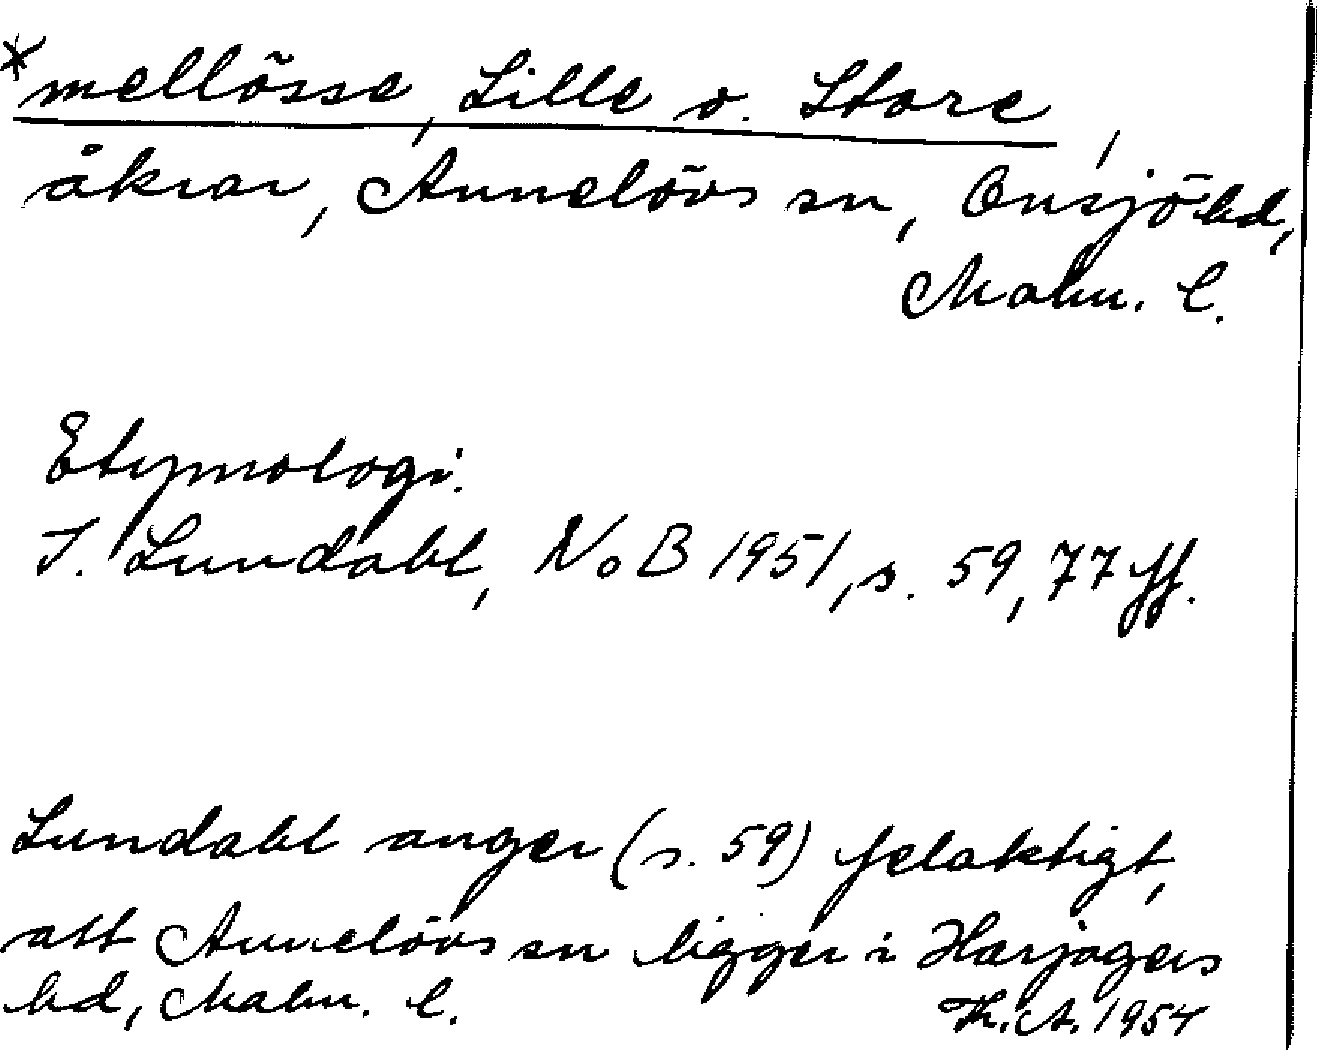 *mellösse, Lille o. Store,
åkrar, Annelövs sn, Onsjö hd,
Malm. l.
Etymologi.
I. Lundahl, NoB 1951, s. 59, 77 ff.
Lundahl anger (s. 59) felaktigt,
att Annelövs sn ligger i Harjagers
hd, Malm. l.
Th. A. 1954